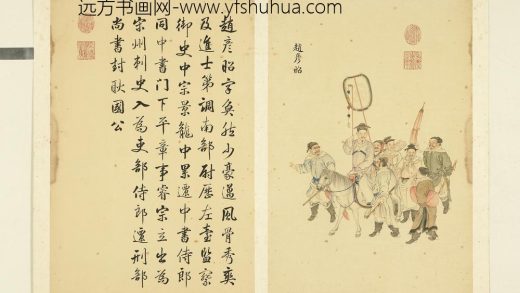 远方书画网-www.yfshuhua.com
趙彥昭
趙彥昭字奐然少豪邁風骨秀爽
及進士第調南部尉歷左臺監察
御史中宗景龍中累遷中書侍郎
同中書門下平章事睿宗立出為
宋州刺史入為吏部侍郎遷刑部
尚書封耿國公